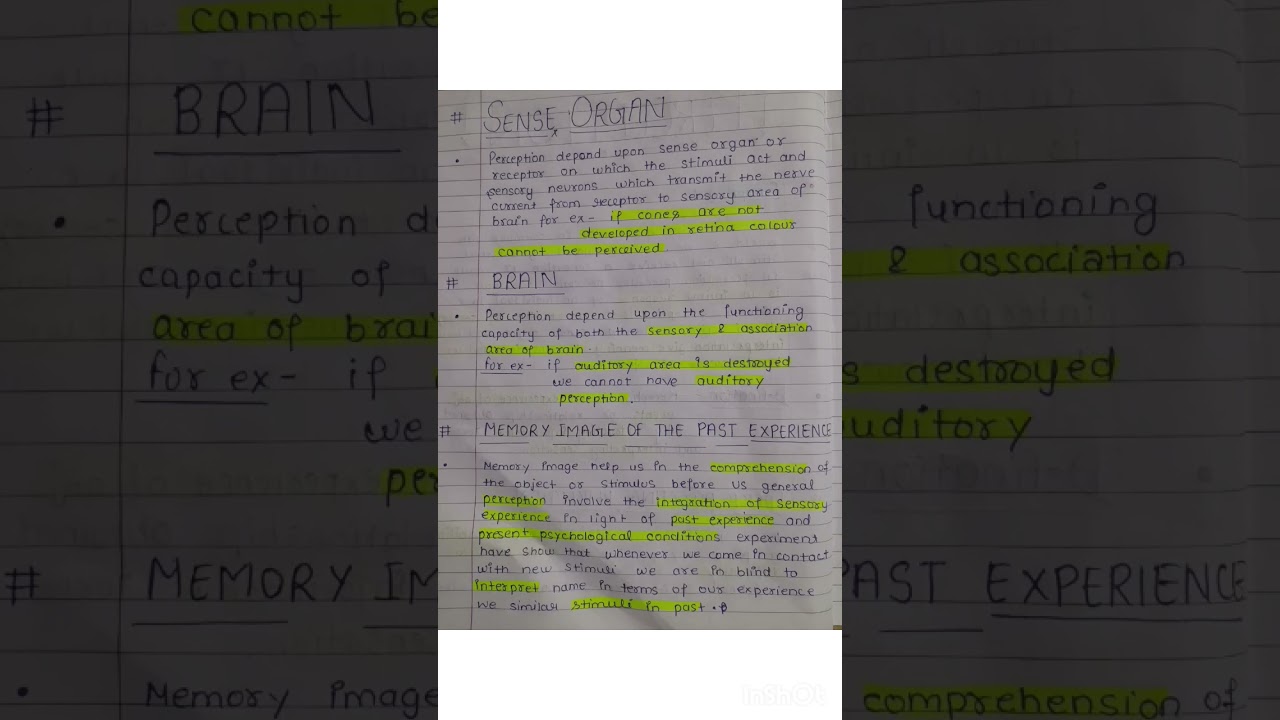 cannot be
# BRAIN
Perception d
capacity of
area of brai
for ex- if
we
per
# MEMORY IM
Memory image
# SENSE ORGAN
Perception depend upon sense organ or
receptor on which the stimuli act and
sensory neurons which transmit the nerve
current from receptor to sensory area of
brain for ex- if cones are not
developed in retina colour
cannot be perceived
# BRAIN
Perception depend upon the functioning
capacity of both the sensory & association
area of brain.
for ex- if auditory area is destroyed
we cannot have auditory
perception.
# MEMORY IMAGE OF THE PAST EXPERIENCE
Memory image help us in the comprehension of
the object or stimulus before us general
perception involve the integration of sensory
experience in light of past experience and
present psychological conditions experiment
have show that whenever we come in contact
with new stimuli we are in blind to
interpret name in terms of our experience
we similar stimuli in past.
functioning
& association
s destroyed
uditory
PAST EXPERIENCE
comprehension of
InShOt